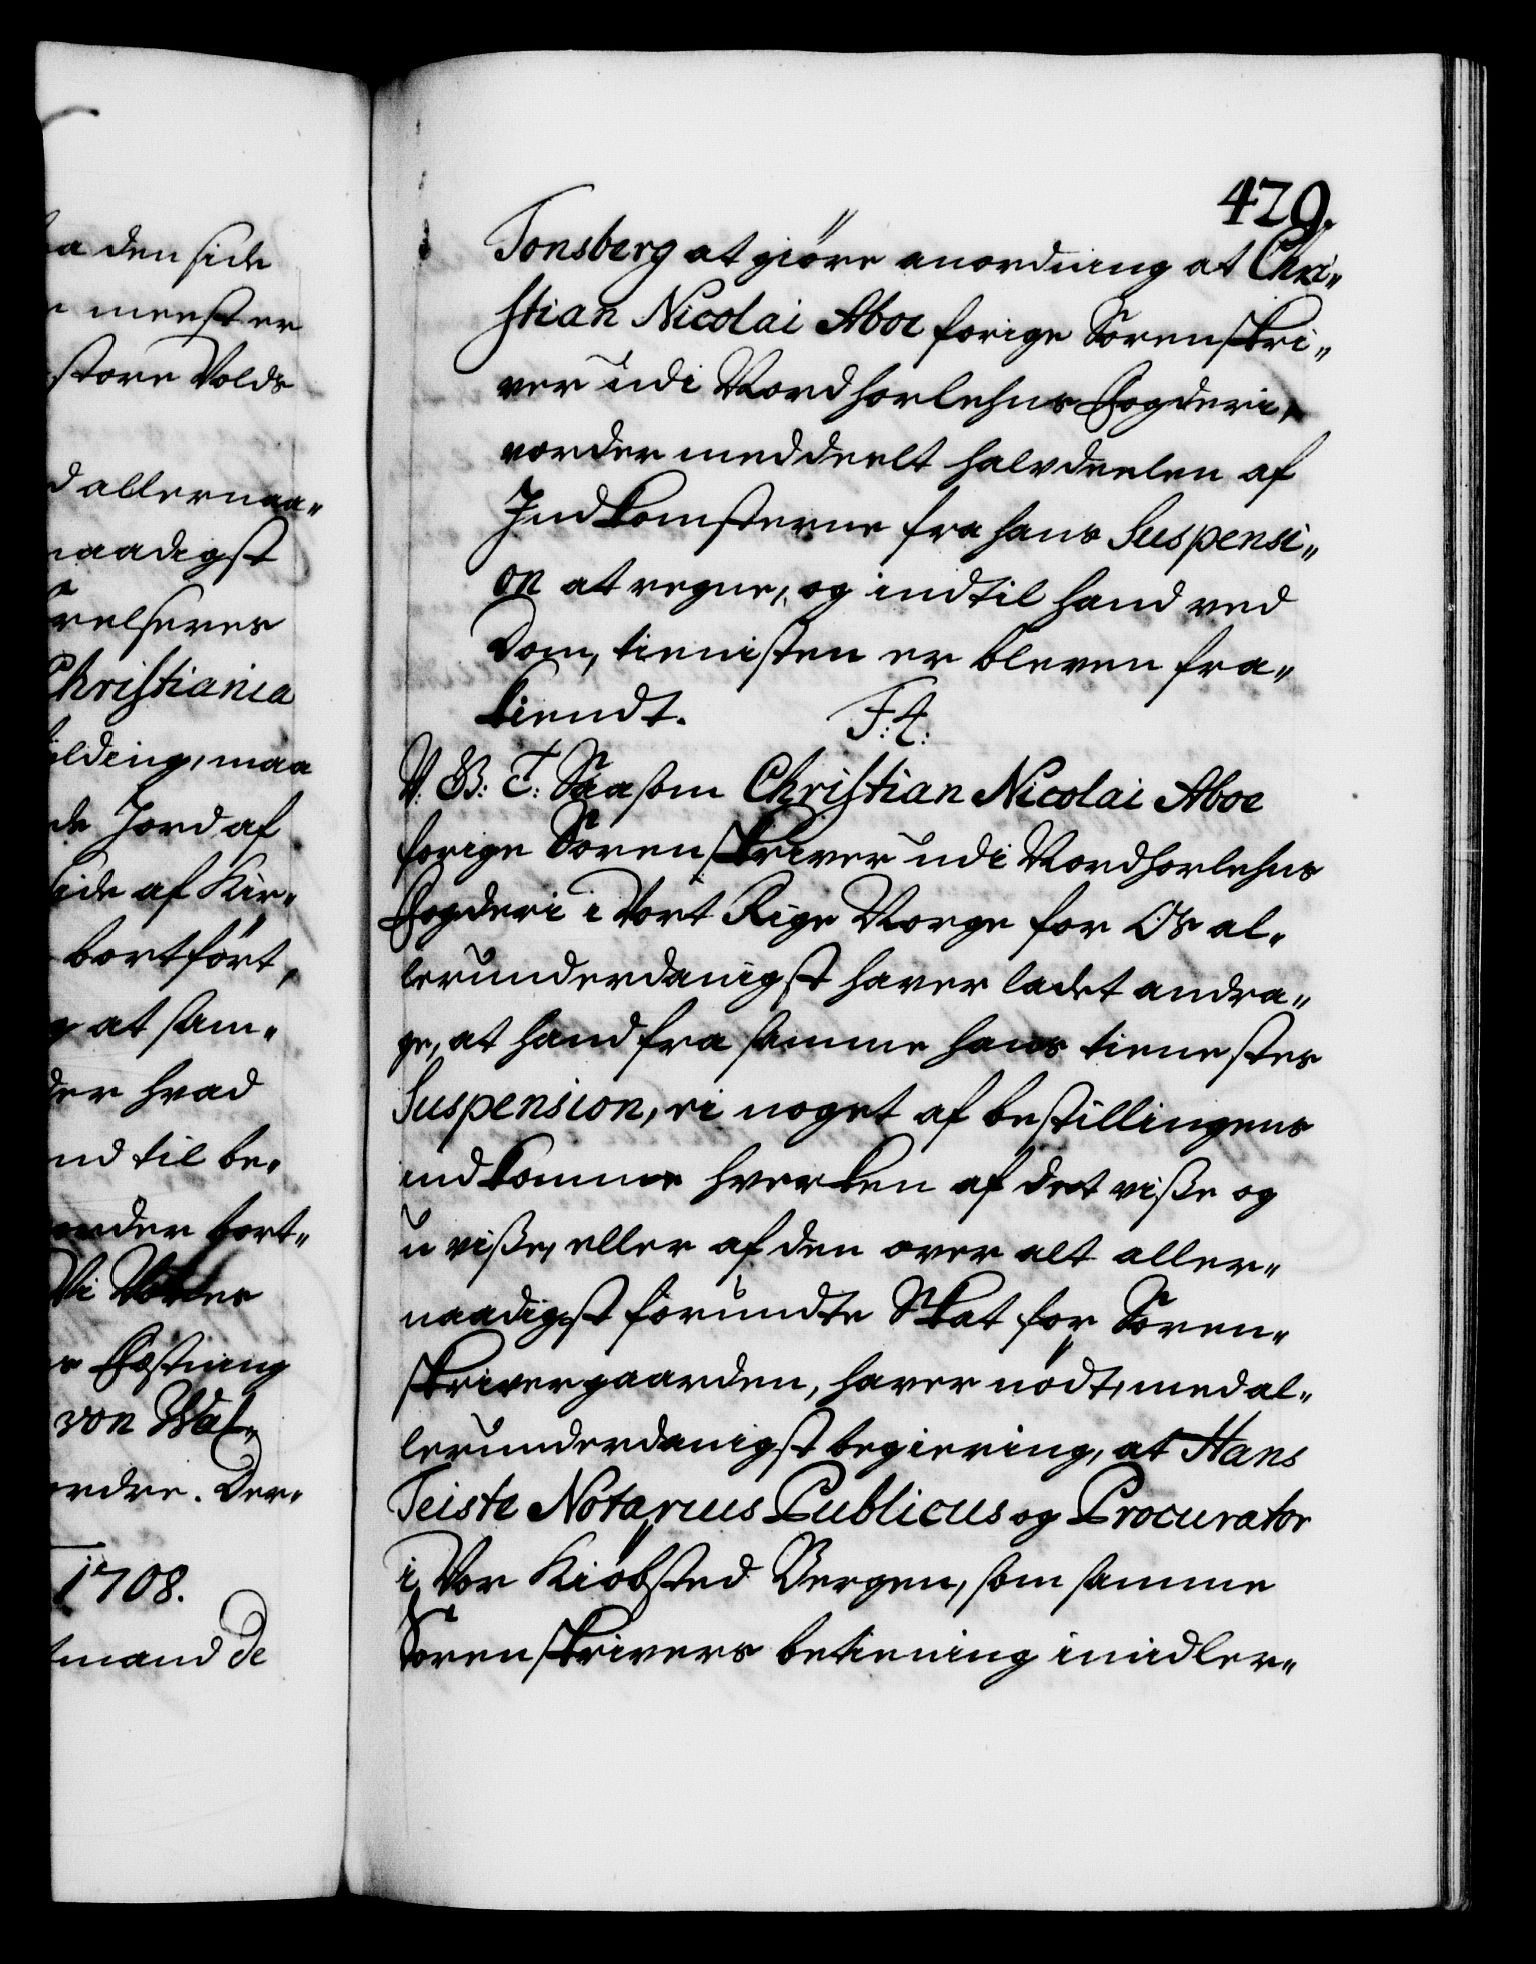 a den side
meenster
store Volds
d allernaa„
naadigst
relserer
Christiania
ilding, maa
de Jord af
side af Kir„
bortført,
at sam„
der hvad
nd til be„
onder bort„
Vi Vores
Fæstning
von Wal„
ordre. Der„
1708.
tmand de
429.
Tonsberg at giøre anordning at Chri„
stian Nicolai Aboe forige Sorenskri„
ver udi Nordhorlehns Fogderi,
vorder meddeelt halvdeelen af
Indkomsterne fra hans Suspensi„
on at regne, og indtil hand ved
Dom, tienisten er bleven fra„
kiendt. F: 4:
V. G: T: Saasom Christian Nicolai Aboe
forige Sorenskriver udi Nordhorlehns
Fogderi i Vort Rige Norge for Os al„
lerunderdanigst haver ladet andra„
ge, at hand fra samme hans tienestes
Suspension, ei noget af bestillingens
indkomme hverken af det viße og
u viße, eller af den over alt aller„
naadigst forundte Skat for Soren„
skrivergaarden, haver nødt, med al„
lerunderdanigst begiering, at Hans
Teiste Notarius Publicus og Procurator
i Vor Kiøbsted Bergen, som samme
Sorenskrivers betiening imidler„